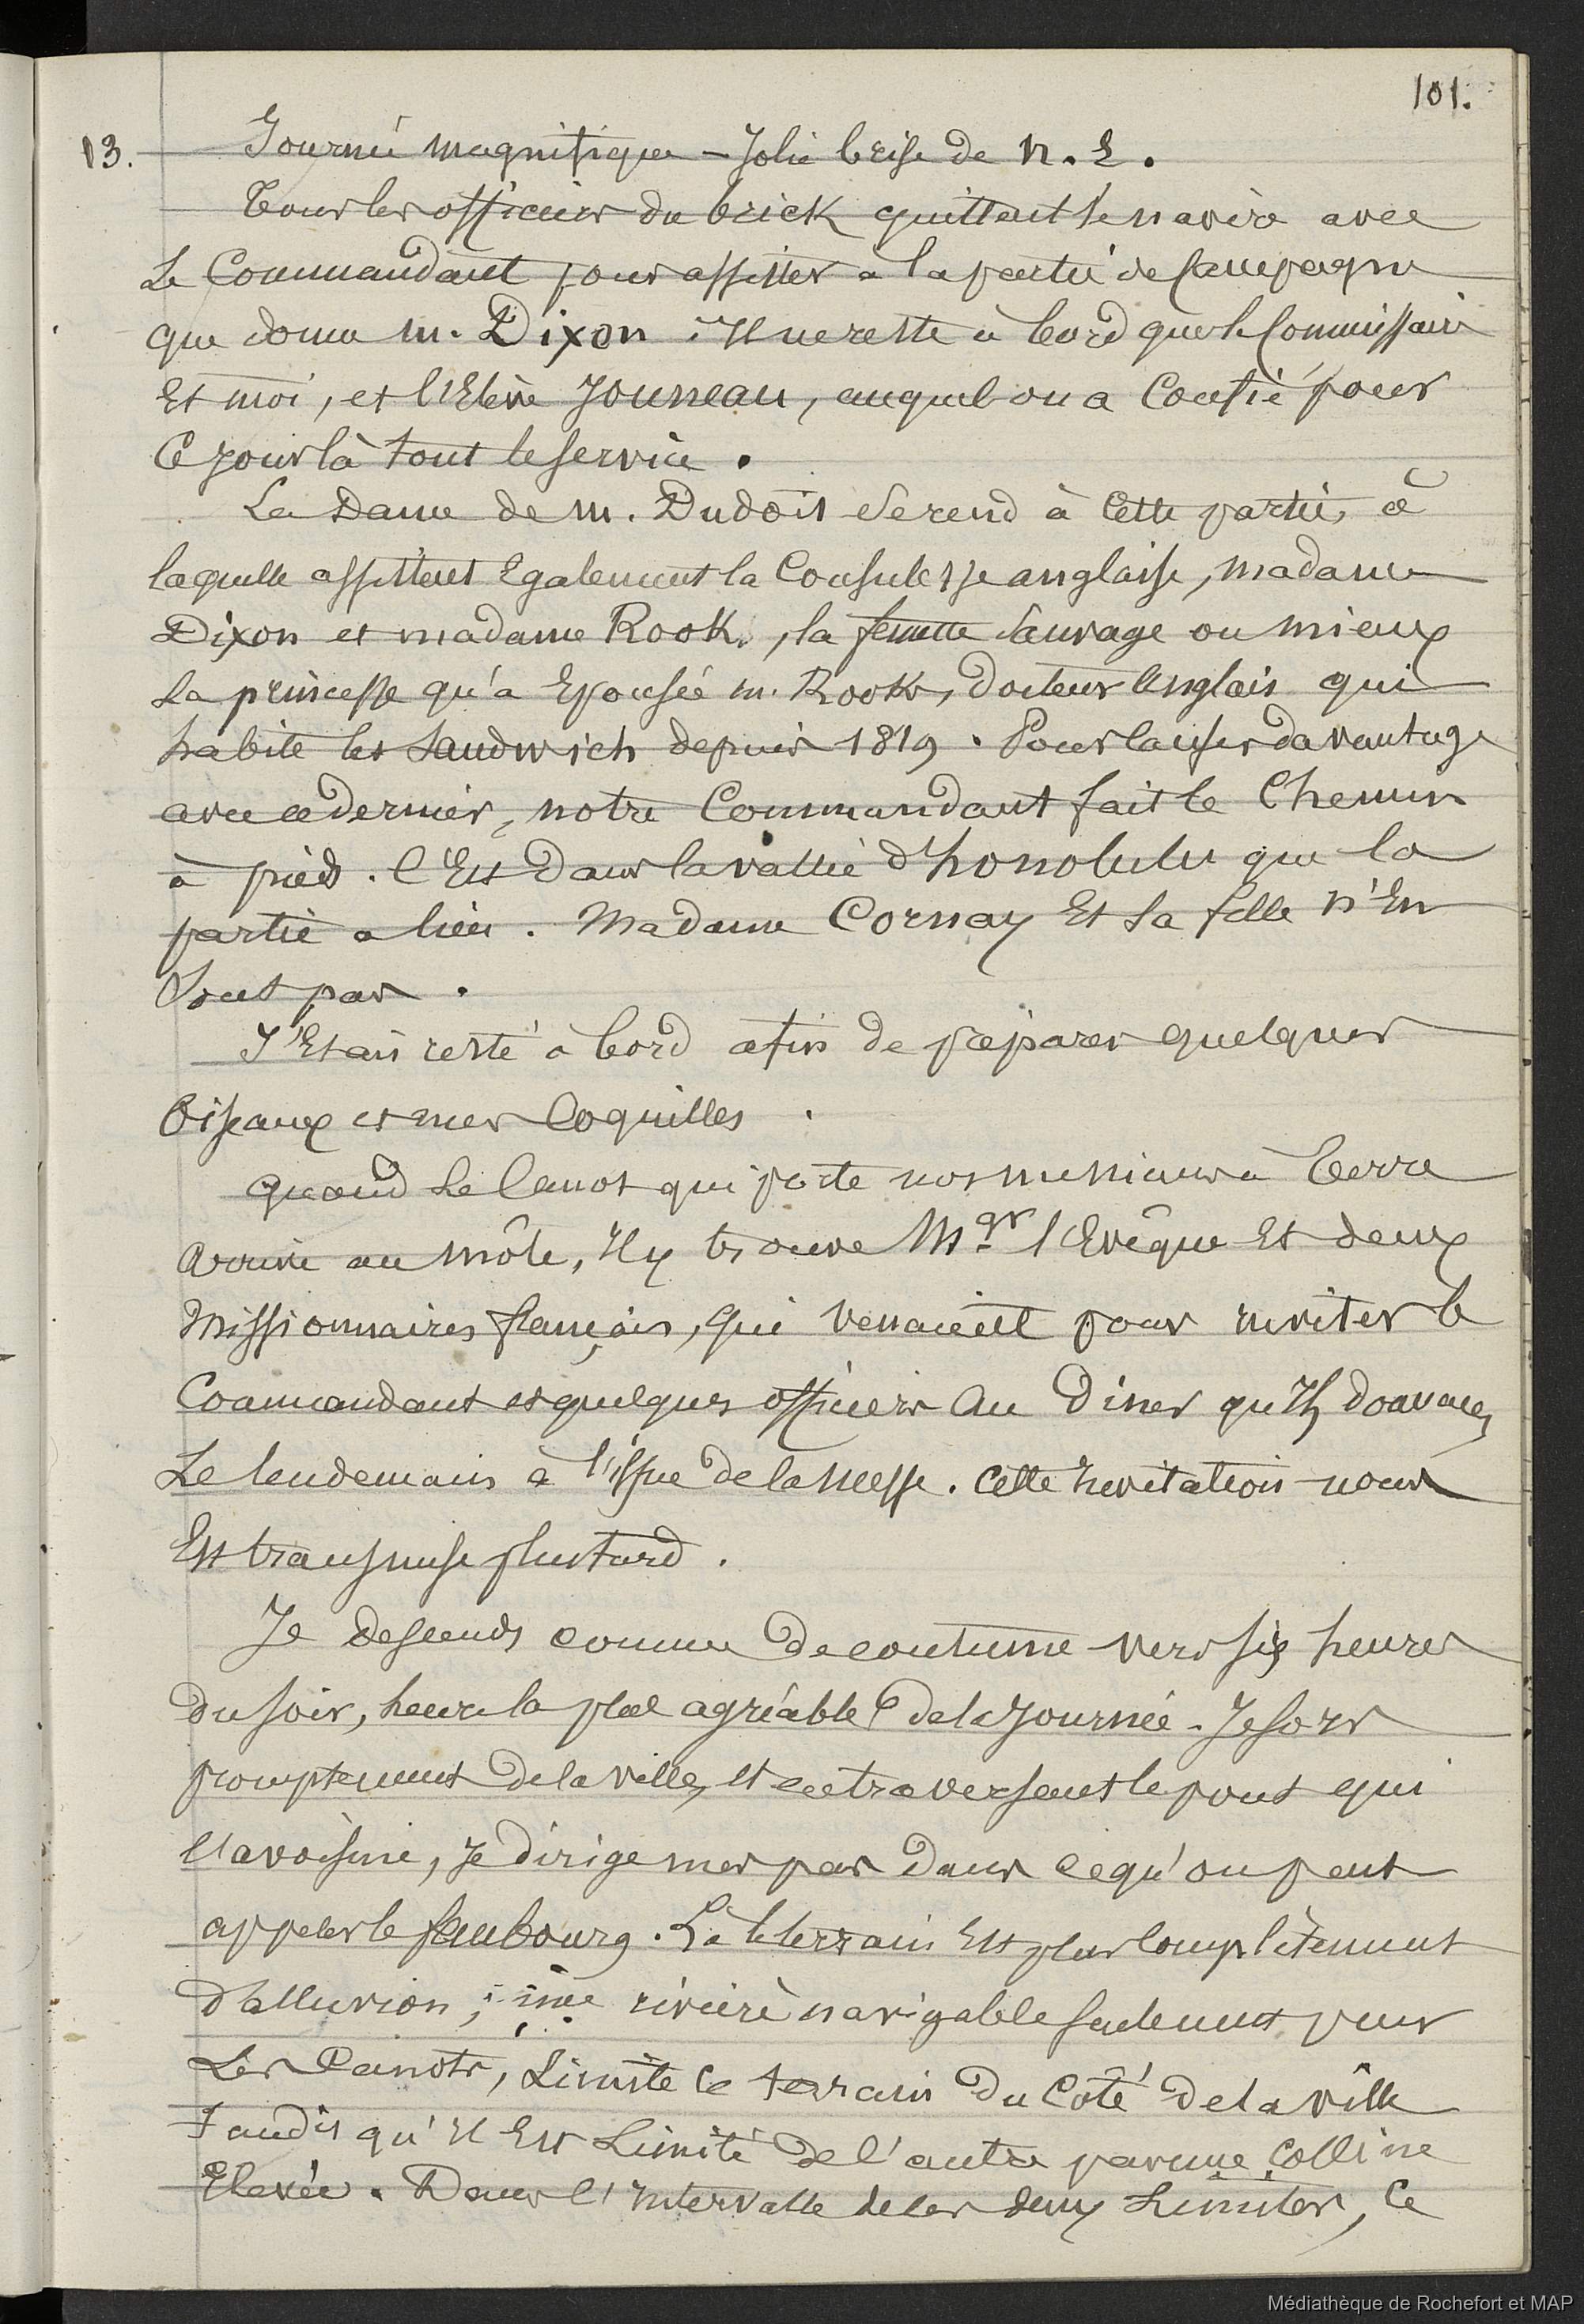 101.
13. Journée magnifique – Jolie brise de N. E.
Tous les officiers du brick quittent le navire avec
Le Commandant pour assister à la partie de Campagne
que donne M. Dixon. Il ne reste à bord que le Commissaire
Et moi, et l'Elève Jouneau, auquel on a Confié pour
Ce jour là tout le service.
La Dame de M. Dudoit se rend à Cette partie, à
laquelle assistent Egalement la Consulesse anglaise, madame
Dixon et madame Rook, la femme sauvage ou mieux
La princesse qu'a Epousée M. Rook, docteur Anglais qui
habite les Sandwich depuis 1819. Pour causer davantage
avec ce dernier, notre Commandant fait le Chemin
à pied. C'Est Dans la vallée d'honolulu que la
partie a lieu. Madame Cornay Et sa fille n'En
Sont pas.
J'Etais resté à bord afin de préparer quelques
Oiseaux et mes Coquilles.
Quand Le Canot qui porte nos messieurs à terre
Arrive au môle, Il y trouve Mgr l'Evêque Et deux
Missionnaires français, qui venaient pour inviter le
Commandant et quelques officiers Au Diner qu'Ils donnaient
Le lendemain à l'issue de la messe. Cette Invitation nous
Est transmise plus tard.
Je descends comme de coutume vers six heures
Du soir, heure la plus agréable de la journée. Je sors
promptement de la ville, et en traversant le pont qui
l'avoisine, Je dirige mes pas Dans ce qu'on peut
appeler le faubourg. Là le terrain Est plus Complètement
D'alluvion; une rivière navigable seulement pour
Les Canots, Limite le terrain Du Côté De la ville
Tandis qu'Il Est Limité De l'autre par une Colline
Elevée. Dans l'Intervalle de ces deux Limites, Ce
Médiathèque de Rochefort et MAP